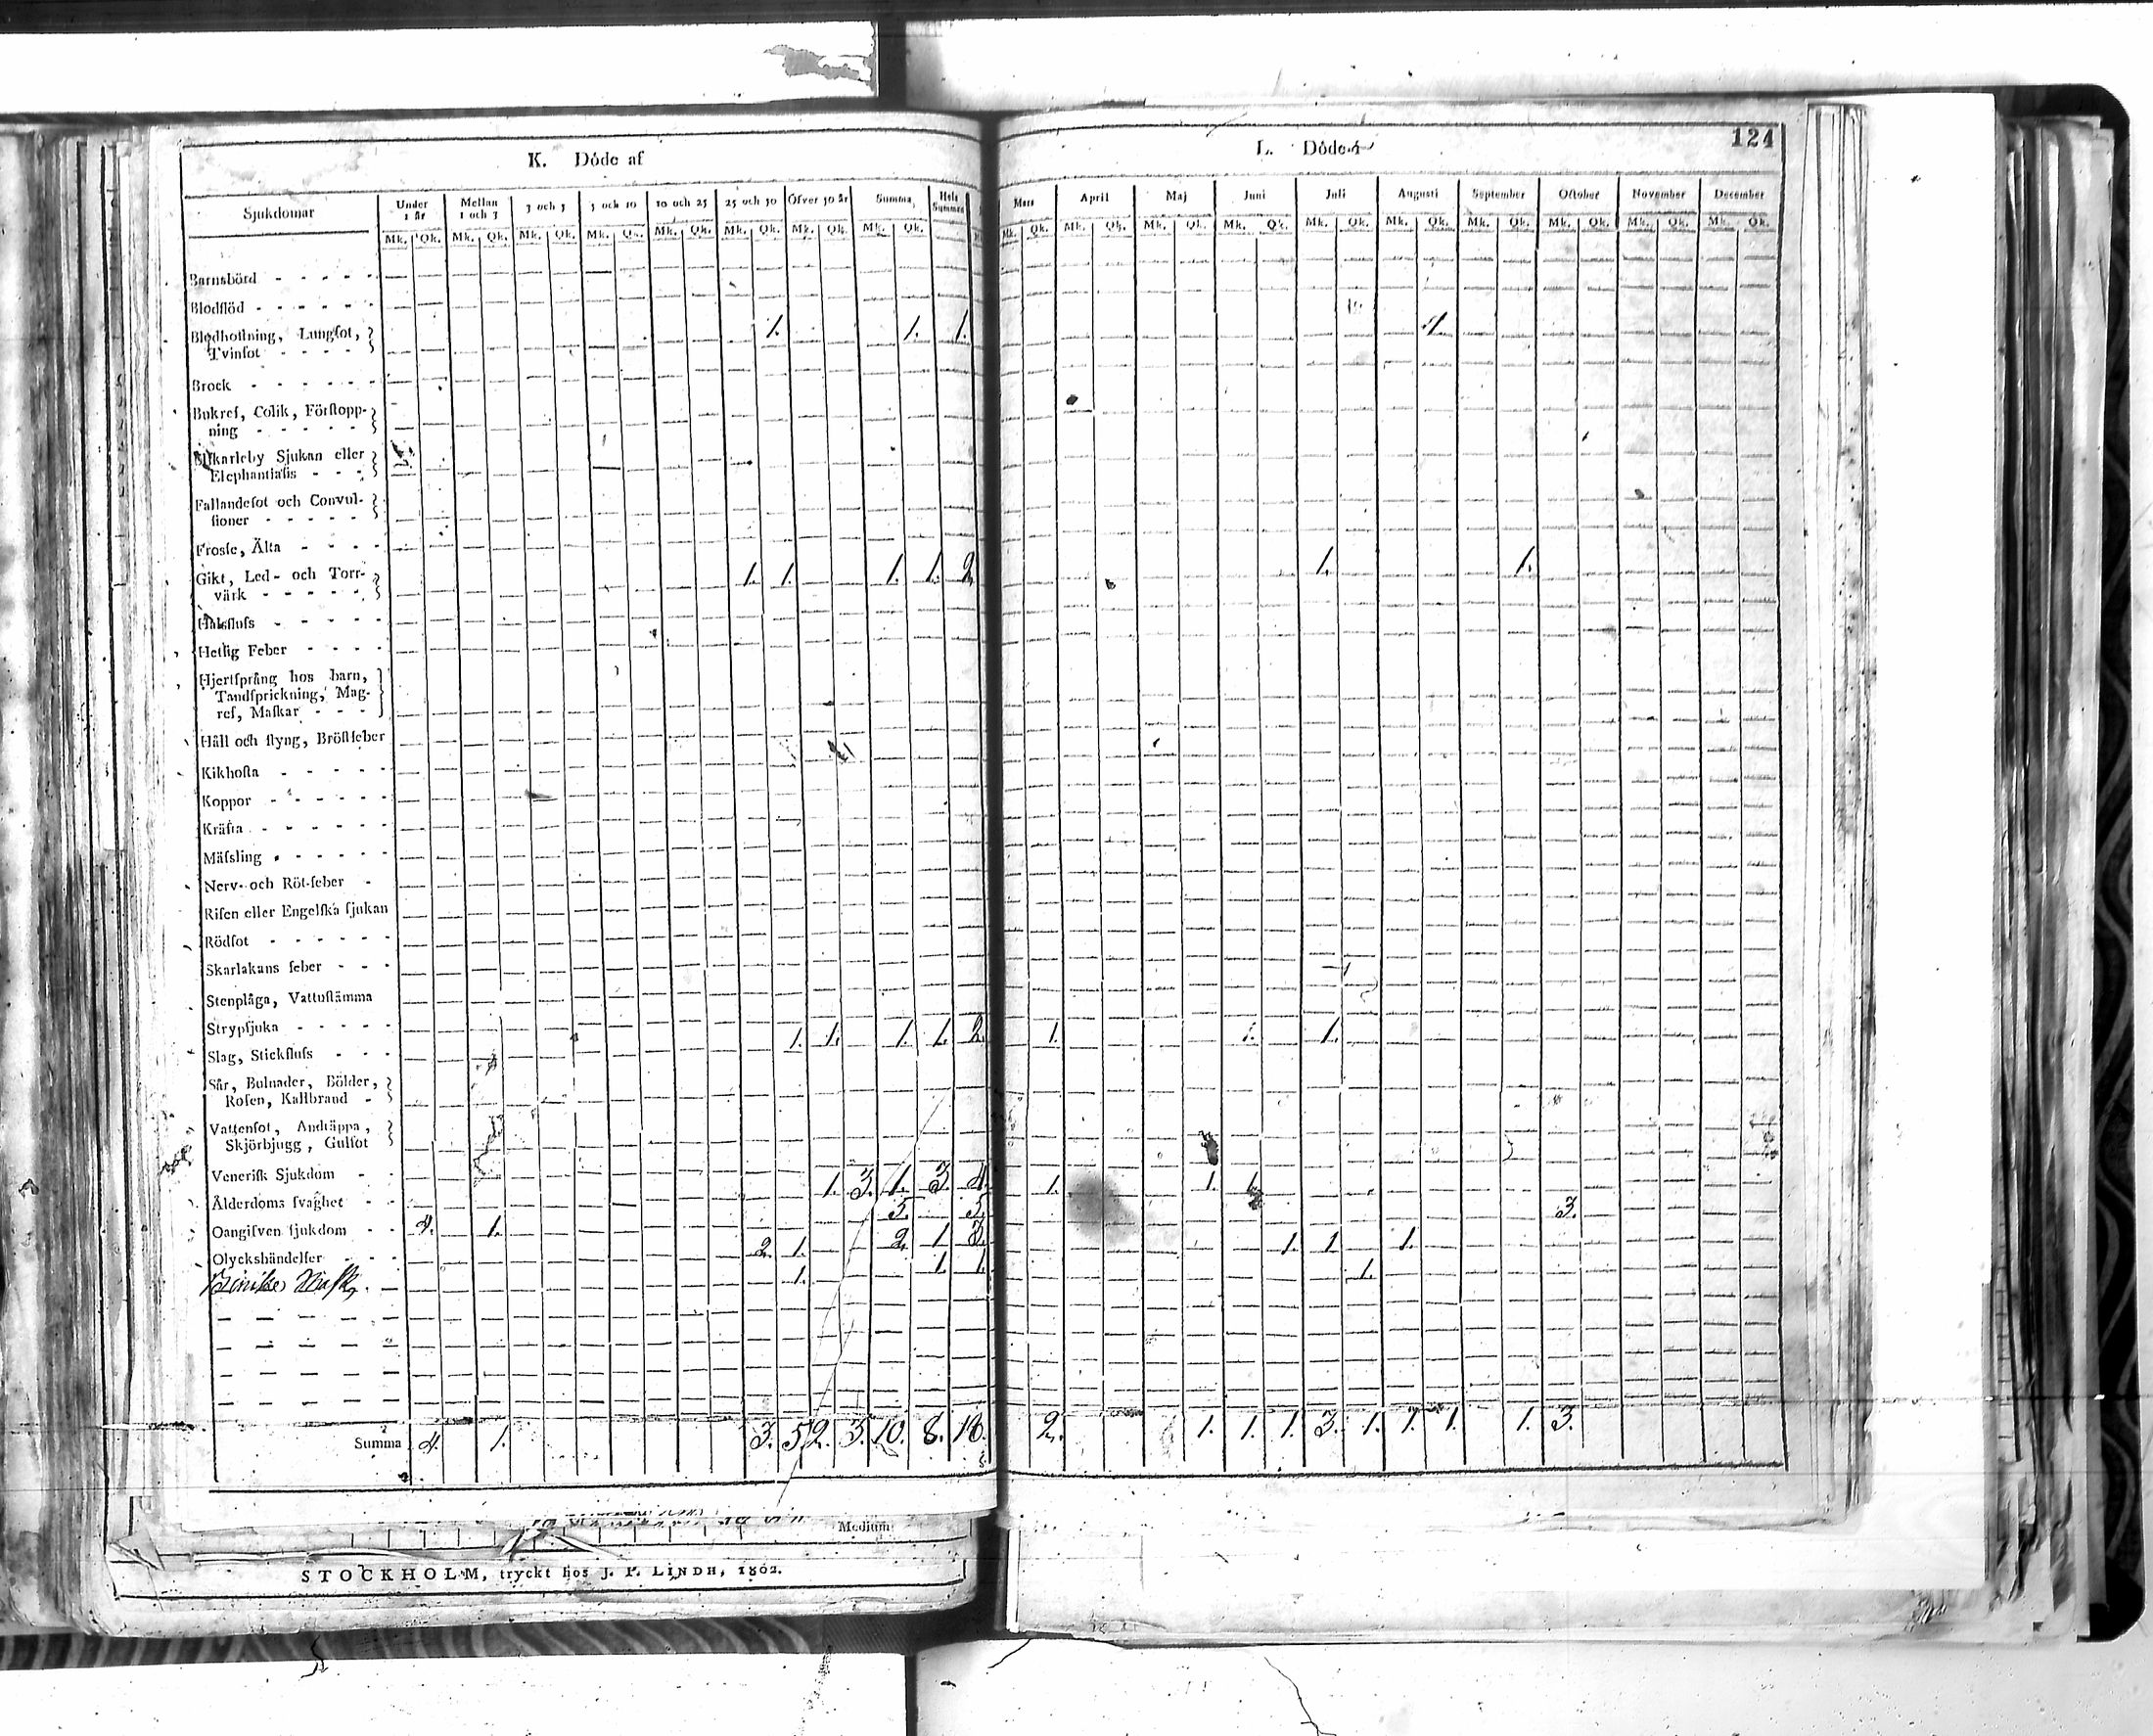 124
K. Döde af
L. Döde i
Sjukdomar Under 1 år Mellan 1 och 3 3 och 5 5 och 10 10 och 25 25 och 50 Öfver 50 år Summa Hela Summan
Mars April Maj Juni Juli Augusti September October November December
Mk. Qk. Mk. Qk. Mk. Qk. Mk. Qk. Mk. Qk. Mk. Qk. Mk. Qk. Mk. Qk.
Mk. Qk. Mk. Qk. Mk. Qk. Mk. Qk. Mk. Qk. Mk. Qk. Mk. Qk. Mk. Qk. Mk. Qk. Mk. Qk.
Barnsbörd
Blodflöd
Blodhoſtning, Lungſot, 1. 1. 1. 1.
Tvinſot
Brock
Bukref, Colik, Förſtopp-
ning
Elfkarleby Sjukan eller
Elephantiaſis
Fallandeſot och Convul-
ſioner
Frosſe, Älta
Gikt, Led- och Torr- 1. 1. 1. 1. 2. 1. 1.
värk
Halsfluſs
Hetſig Feber
Hjertſprång hos barn,
Tandſprickning, Mag-
ref, Maſkar
Håll och ſtyng, Bröſtfeber
Kikhoſta
Koppor
Kräfta
Mäſsling
Nerv- och Röt-feber
Riſen eller Engelſka ſjukan
Rödſot
Skarlakans feber
Stenplåga, Vattuſtämma
Strypſjuka
Slag, Stickfluſs 1. 1. 1. 1. 2. 1. 1. 1.
Sår, Bulnader, Bölder,
Roſen, Kallbrand
Vattenſot, Andtäppa,
Skjörbjugg, Gulſot
Veneriſk Sjukdom
Ålderdoms ſvaghet 1. 3. 1. 3. 4. 1. 1. 1.
Oangifven ſjukdom 4. 1. 5. 5. 3.
Olyckshändelſer 2. 1. 2. 1. 3. 1. 1. 1.
1. 1. 1. 1.
Summa 4. 1. 3. 5. 2. 3. 10. 8. 18. 2. 1. 1. 1. 3. 1. 1. 1. 1. 3.
Medium
STOCKHOLM, tryckt hos J. P. LINDH, 1802.